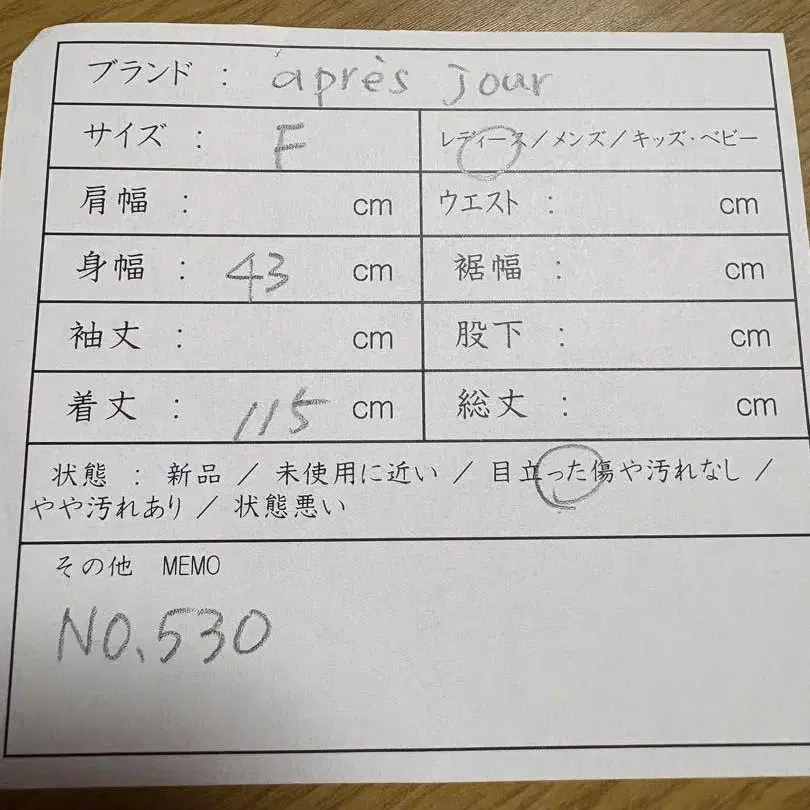 ブランド : après jour
サイズ : F レディース/メンズ/キッズ・ベビー
肩幅 : cm ウエスト : cm
身幅 : 43 cm 裾幅 : cm
袖丈 : cm 股下 : cm
着丈 : 115 cm 総丈 : cm
状態 : 新品 / 未使用に近い / 目立った傷や汚れなし /
やや汚れあり / 状態悪い
その他 MEMO
NO.530